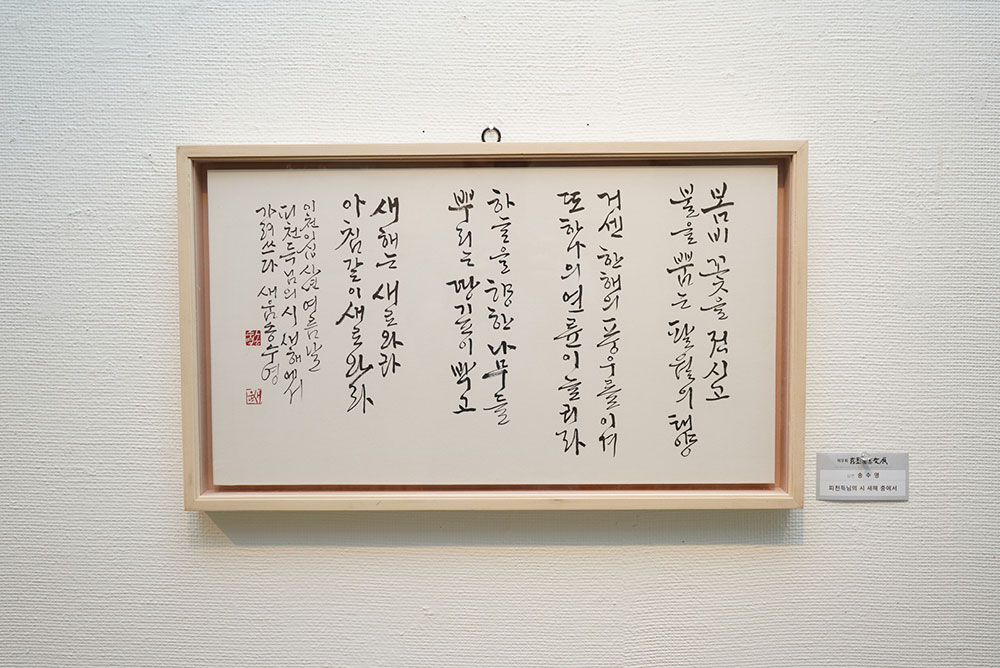 봄비 꽃을 적시고
불을 뿜는 팔월의 태양
거센 한 해의 풍우를 이겨
또 하나의 연륜이 늘리라
하늘을 향한 나무들
뿌리는 땅 깊이 박고
새해는 새로와라
아침같이 새로와라
여름날
피천득님의 시 새해에서
가려쓰다 새움 송수영
송 수 영
피천득님의 시 새해 중에서